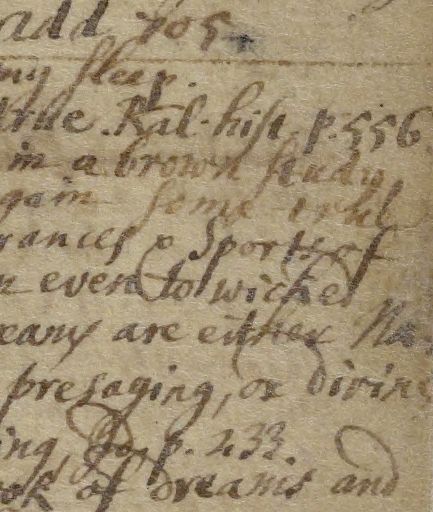 add 705.
my sleep.
true Kal. hist. p. 556
in a brown study
gain some
rances & Sports of
n even to wicke
reams are either Na
presaging, or divine
ing, p. 233.
ook of dreams and